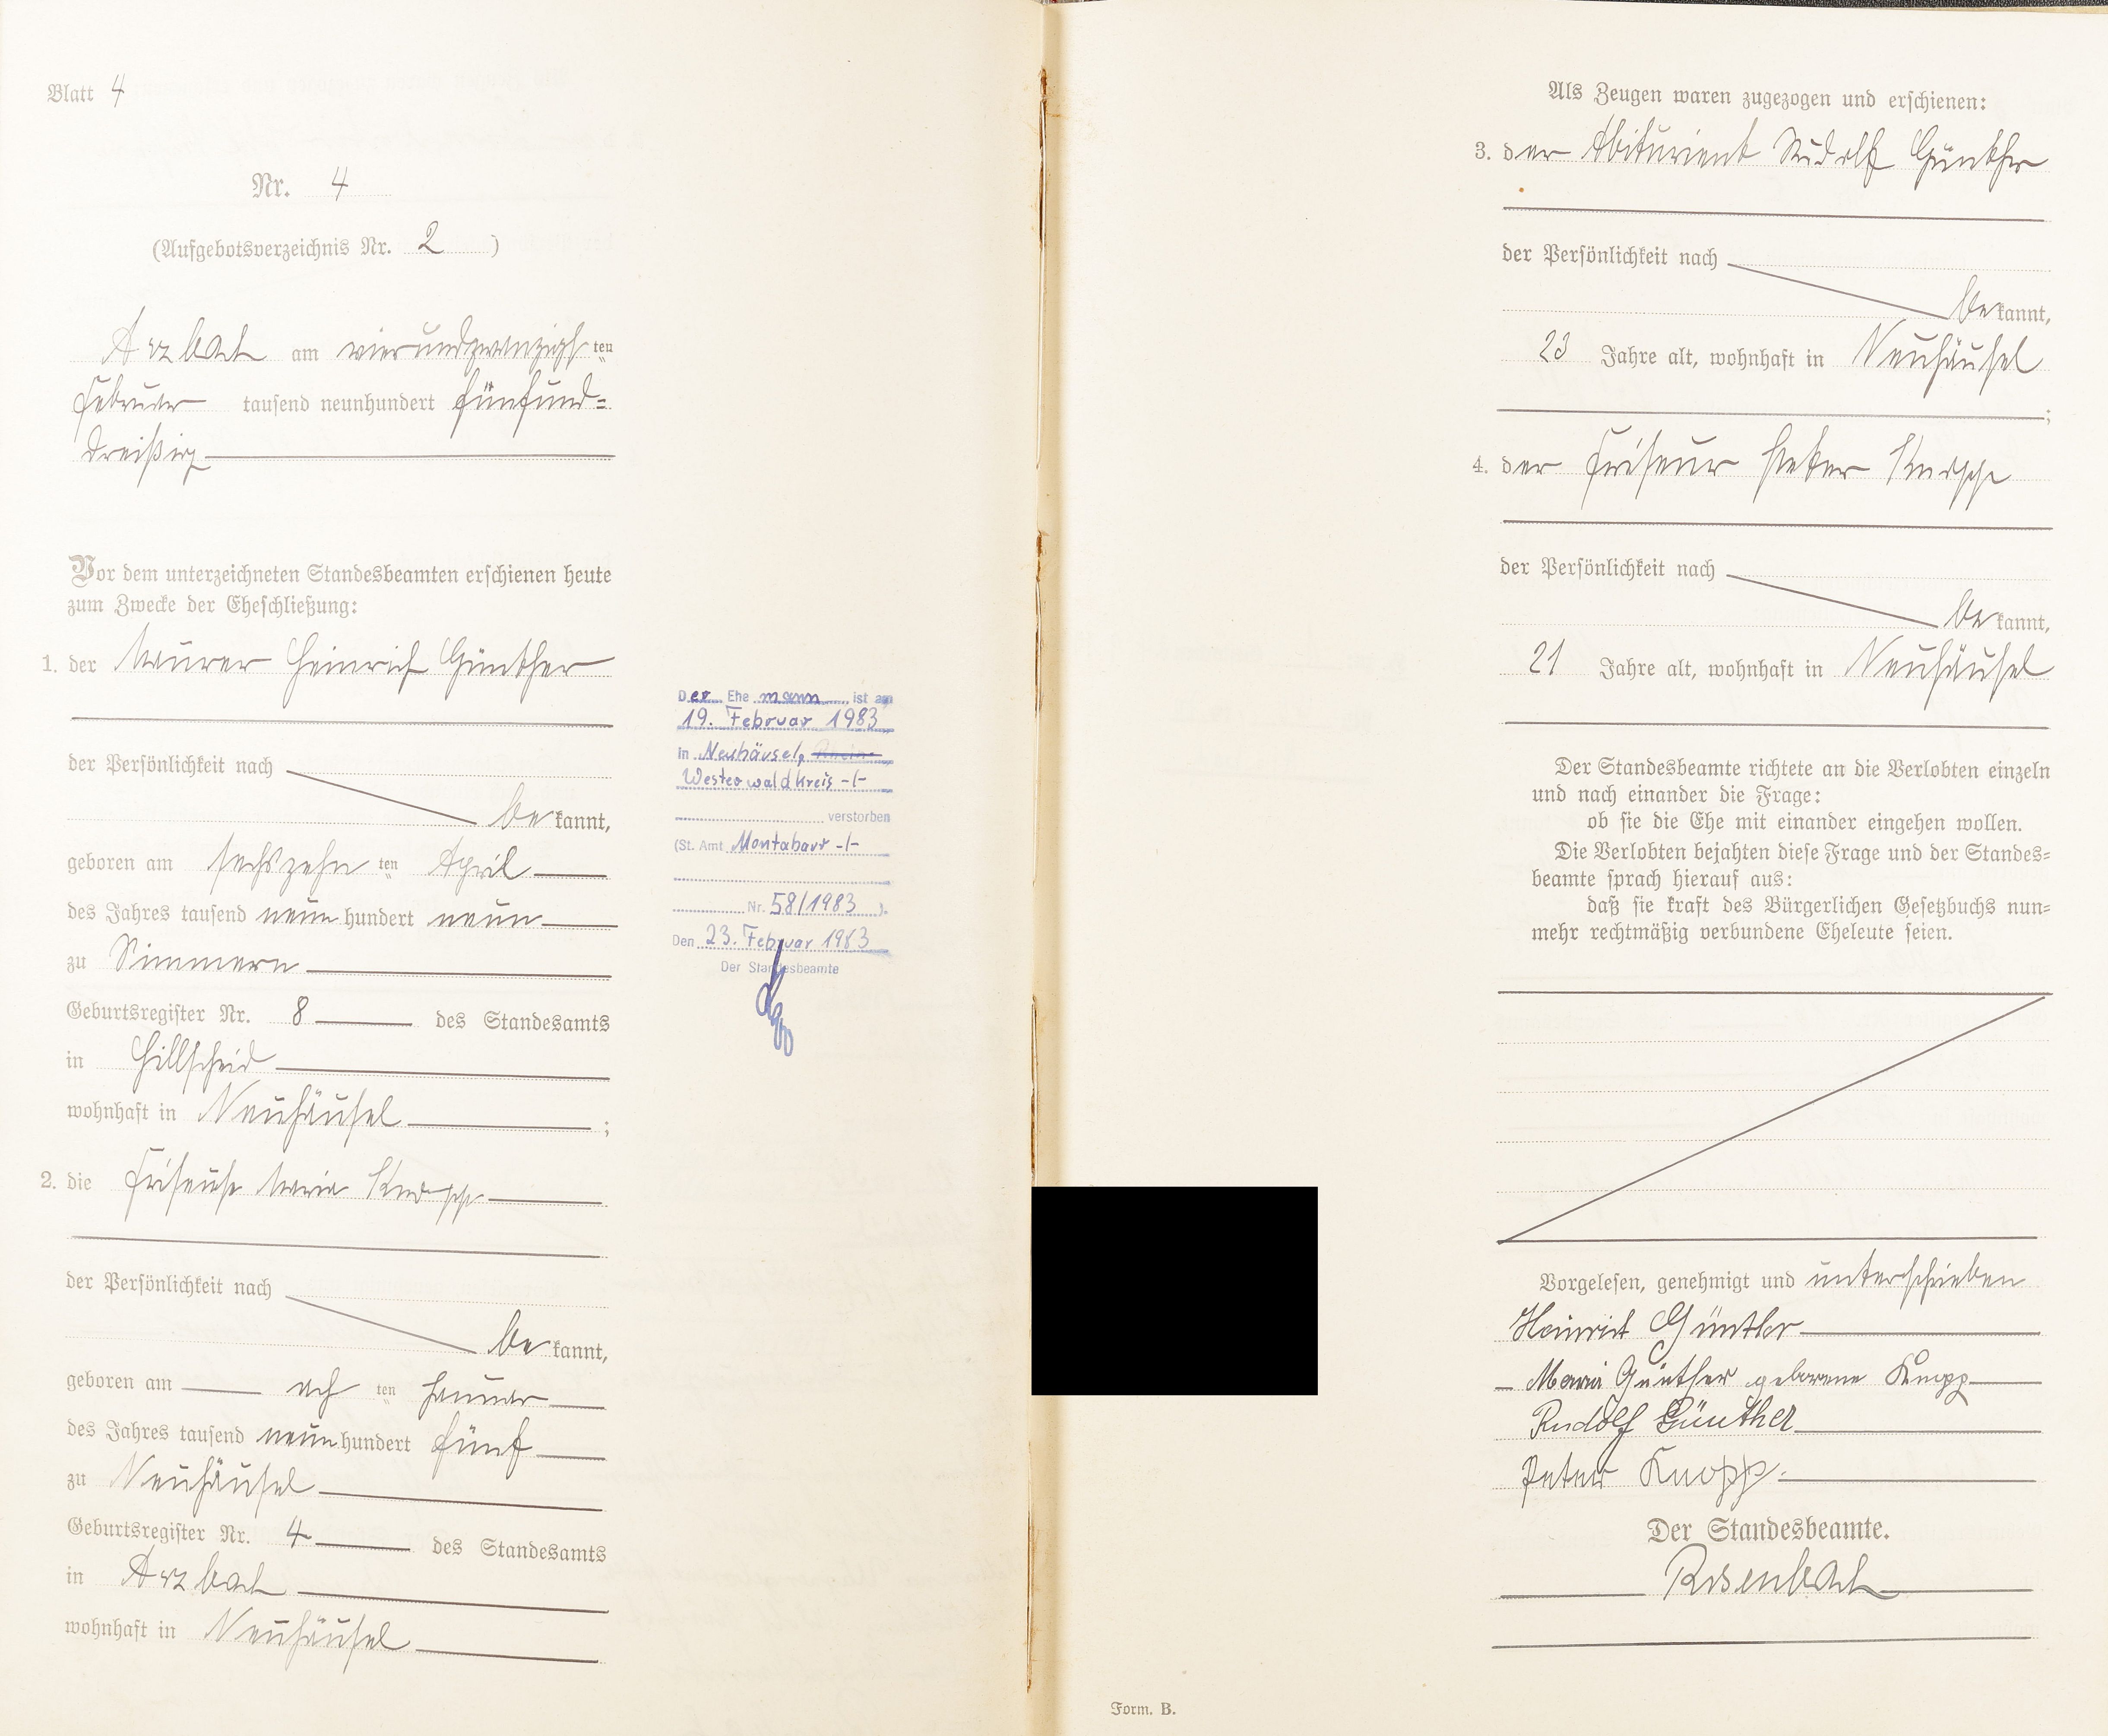 Blatt 4
Nr. 4
(Aufgebotsverzeichnis Nr. 2)
Arzbach am vierundzwanzigsten
Februar tausend neunhundert fünfund=
dreißig
Vor dem unterzeichneten Standesbeamten erschienen heute
zum Zwecke der Eheschließung:
1. der Maurer Heinrich Günther
der Persönlichkeit nach
bekannt,
geboren am sechszehnten April
des Jahres tausend neunhundert neun
zu Simmern
Geburtsregister Nr. 8 des Standesamts
in Hillscheid
wohnhaft in Neuhäusel;
2. die Friseuse Maria Knopp
der Persönlichkeit nach
bekannt,
geboren am achten Januar
des Jahres tausend neunhundert fünf
zu Neuhäusel
Geburtsregister Nr. 4 des Standesamts
in Arzbach
wohnhaft in Neuhäusel
Der Ehemann ist am
19. Februar 1983
in Neuhäusel,
Westerwaldkreis -/-
verstorben
(St. Amt Montabaur -/-
Nr. 58/1983 ).
Den 23. Februar 1983
Der Standesbeamte
Als Zeugen waren zugezogen und erschienen:
3. der Abiturient Rudolf Günther
der Persönlichkeit nach
bekannt,
23 Jahre alt, wohnhaft in Neuhäusel
;
4. der Friseur Peter Knopp
der Persönlichkeit nach
bekannt,
21 Jahre alt, wohnhaft in Neuhäusel
Der Standesbeamte richtete an die Verlobten einzeln
und nach einander die Frage:
ob sie die Ehe mit einander eingehen wollen.
Die Verlobten bejahten diese Frage und der Standes=
beamte sprach hierauf aus:
daß sie kraft des Bürgerlichen Gesetzbuchs nun=
mehr rechtmäßig verbundene Eheleute seien.
Vorgelesen, genehmigt und unterschrieben
Heinrich Günther
Maria Günther geborene Knopp
Rudolf Günther
Peter Knopp.
Der Standesbeamte.
Rosenbach
Form. B.